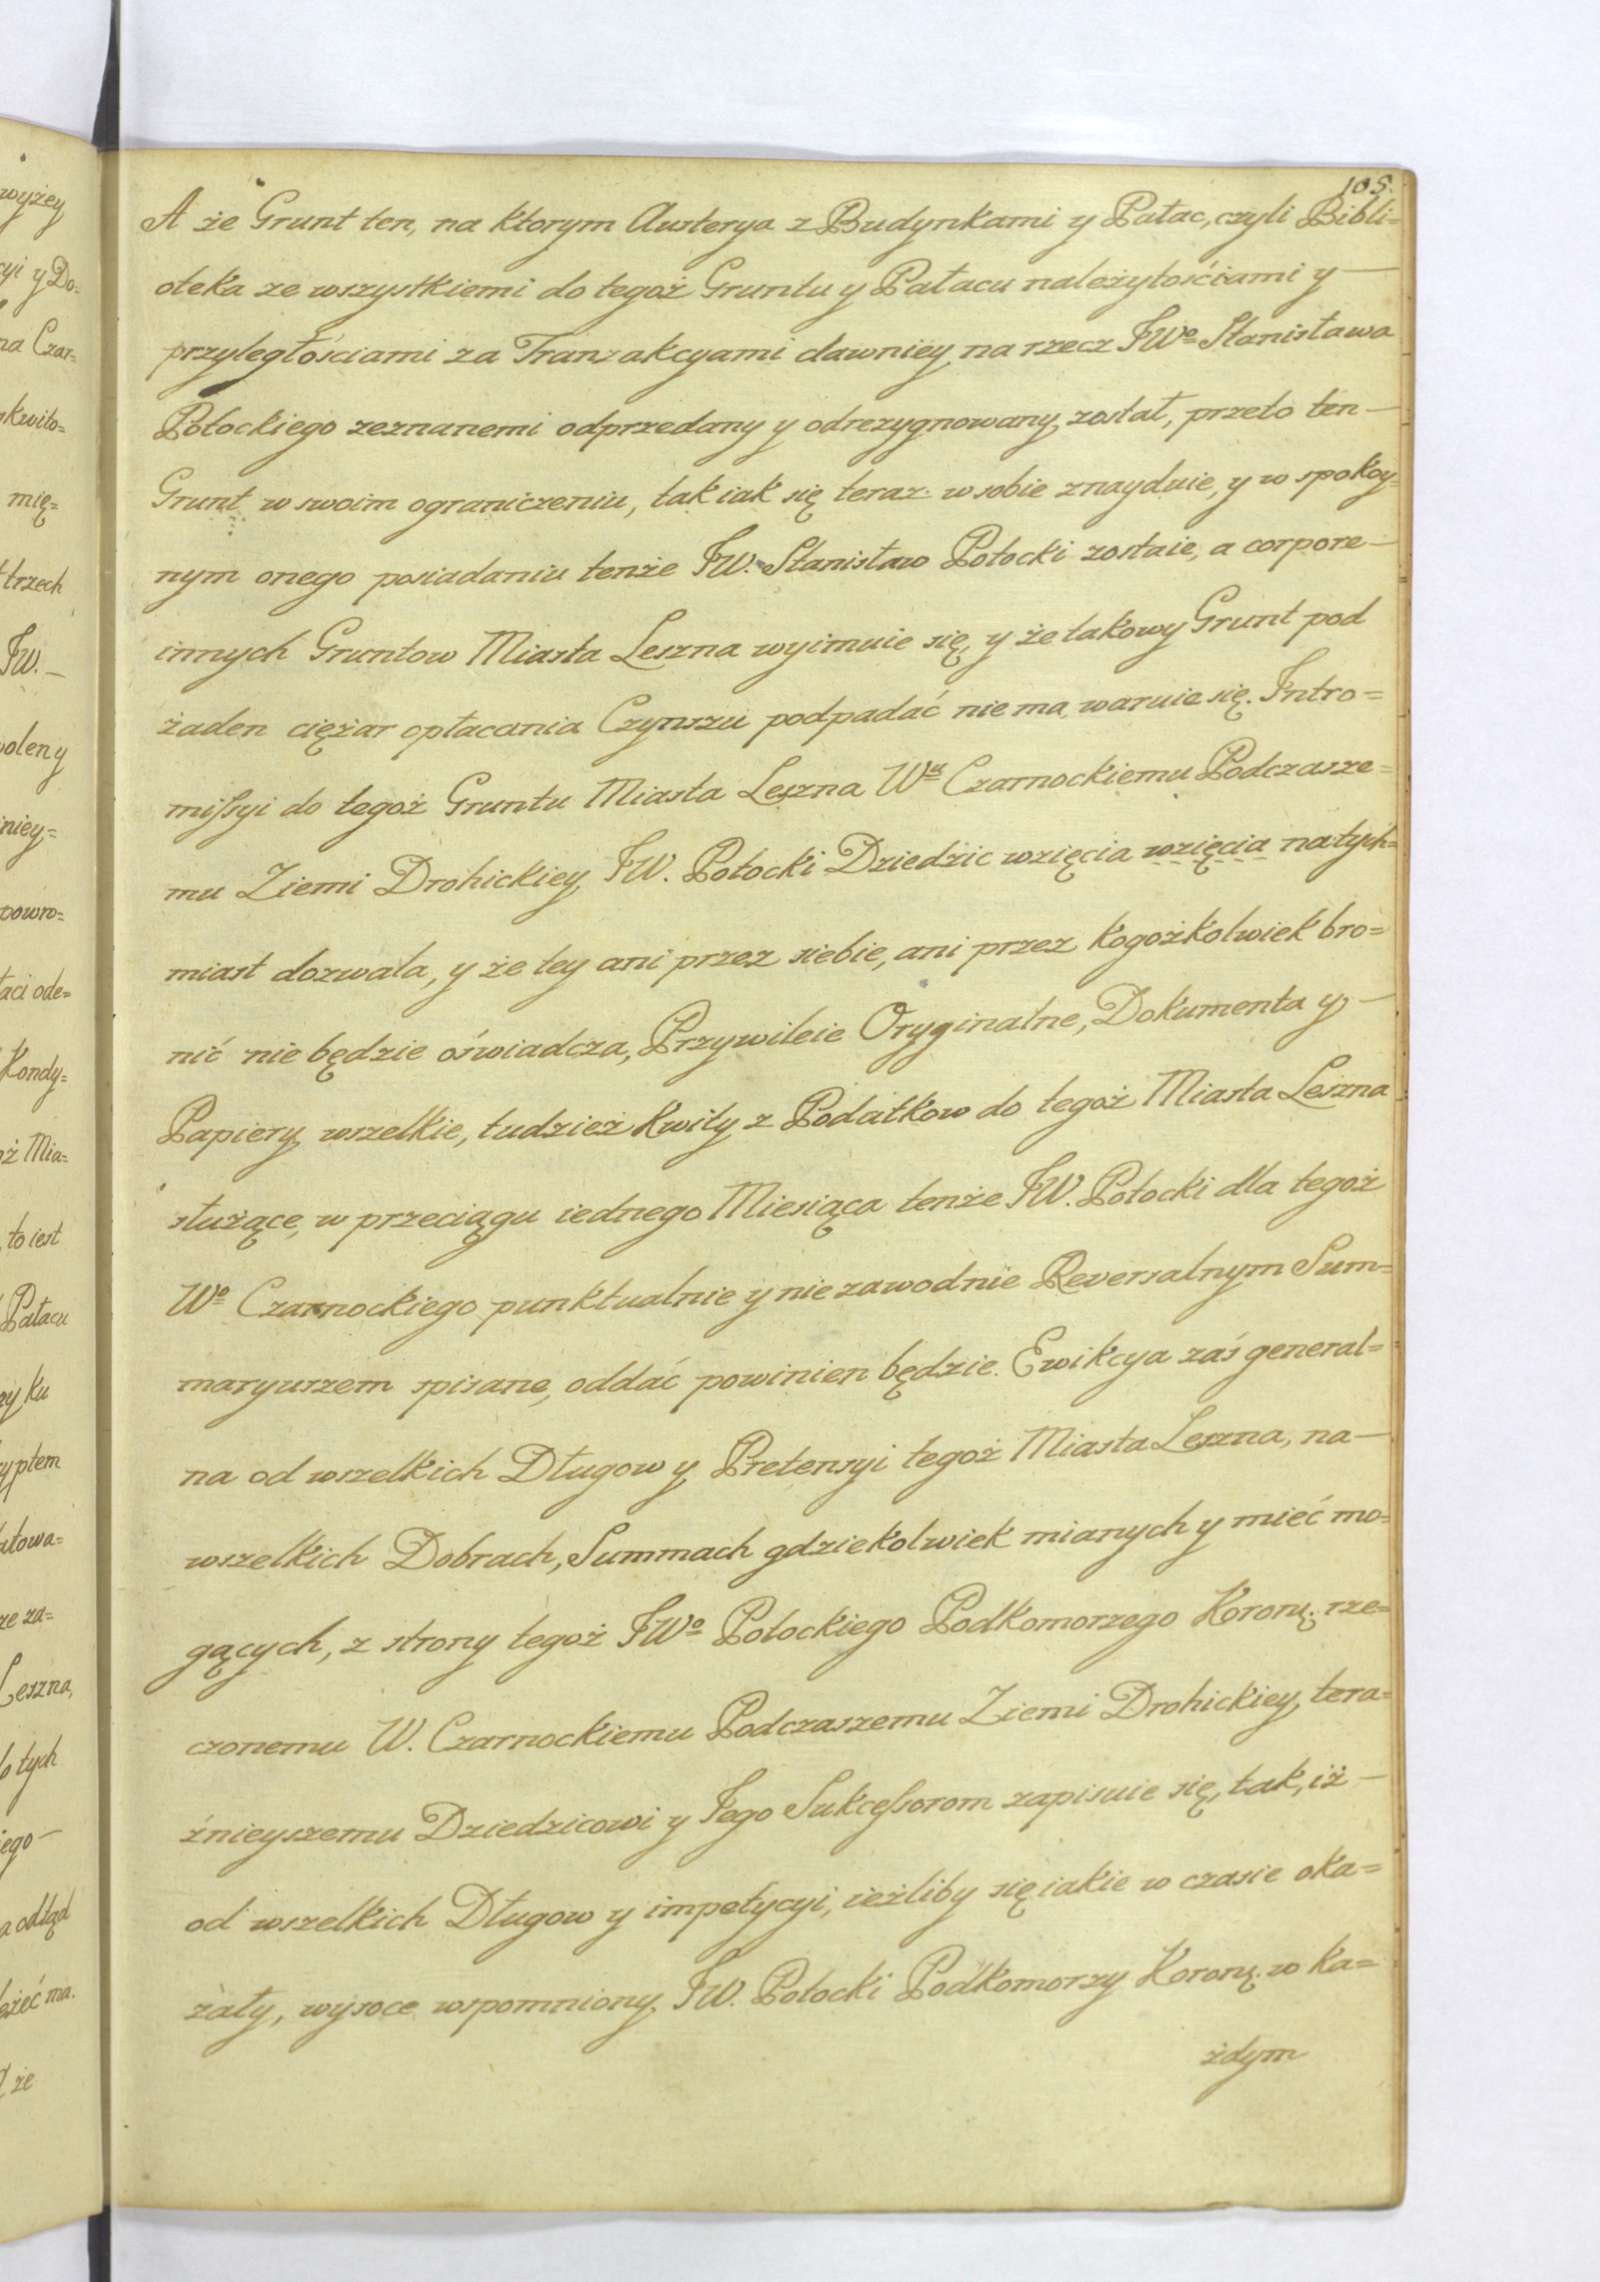 105.
A że Grunt ten, na ktorym Austerya z Budynkami y Pałac, czyli Bibli=
oteka ze wszystkiemi do tegoż Gruntu y Pałacu należytościami y —
przyległościami za Tranzakcyami dawniey na rzecz JWº Stanisława
Potockiego zeznanemi odprzedany y odrezygnowany został, przeto ten —
Grunt w swoim ograniczeniu, tak iak się teraz w sobie znayduie, y w spokoy=
nym onego posiadaniu tenże JW. Stanisław Potocki zostaie, a corpore —
innych Gruntow Miasta Leszna wyimuie się, y że takowy Grunt pod
żaden ciężar opłacania Czynszu podpadać nie ma, waruie się. Intro=
missyi do tegoż Gruntu Miasta Leszna Wᵘ Czarnockiemu Podczasze=
mu Ziemi Drohickiey JW. Potocki Dziedzic wzięcia wzięcia natych=
miast dozwala, y że tey ani przez siebie, ani przez kogożkolwiek bro=
nić nie będzie oświadcza, Przywileie Oryginalne, Dokumenta y —
Papiery wszelkie, tudzież kwity z Podatkow do tegoż Miasta Leszna
służące, w przeciągu iednego Miesiąca tenże JW. Potocki dla tegoż
Wº Czarnockiego punktualnie y niezawodnie Reversalnym Sum=
maryuszem spisane, oddać powinien będzie. Ewikcya zaś general=
na od wszelkich Długow y Pretensyi tegoż Miasta Leszna, na —
wszelkich Dobrach, Summach gdziekolwiek mianych y mieć mo=
gących, z strony tegoż JWº Potockiego Podkomorzego Koronn: rze=
czonemu W. Czarnockiemu Podczaszemu Ziemi Drohickiey, tera=
źnieyszemu Dziedzicowi y Jego Sukcessorom zapisuie się, tak, iż —
od wszelkich Długow y impetycyi, ieżliby się iakie w czasie oka=
zały, wysoce wspomniony JW. Potocki Podkomorzy Koronn: w ka=
żdym
wyżey
cyi y Do=
na Czar=
okwito=
mię=
trzech
JW. —
niey=
powro=
Kondy=
oż Mia=
, to iest
Pałacu
ry ku
ze za=
Leszna,
tych
iego —
a odtąd
eżeć ma.
że